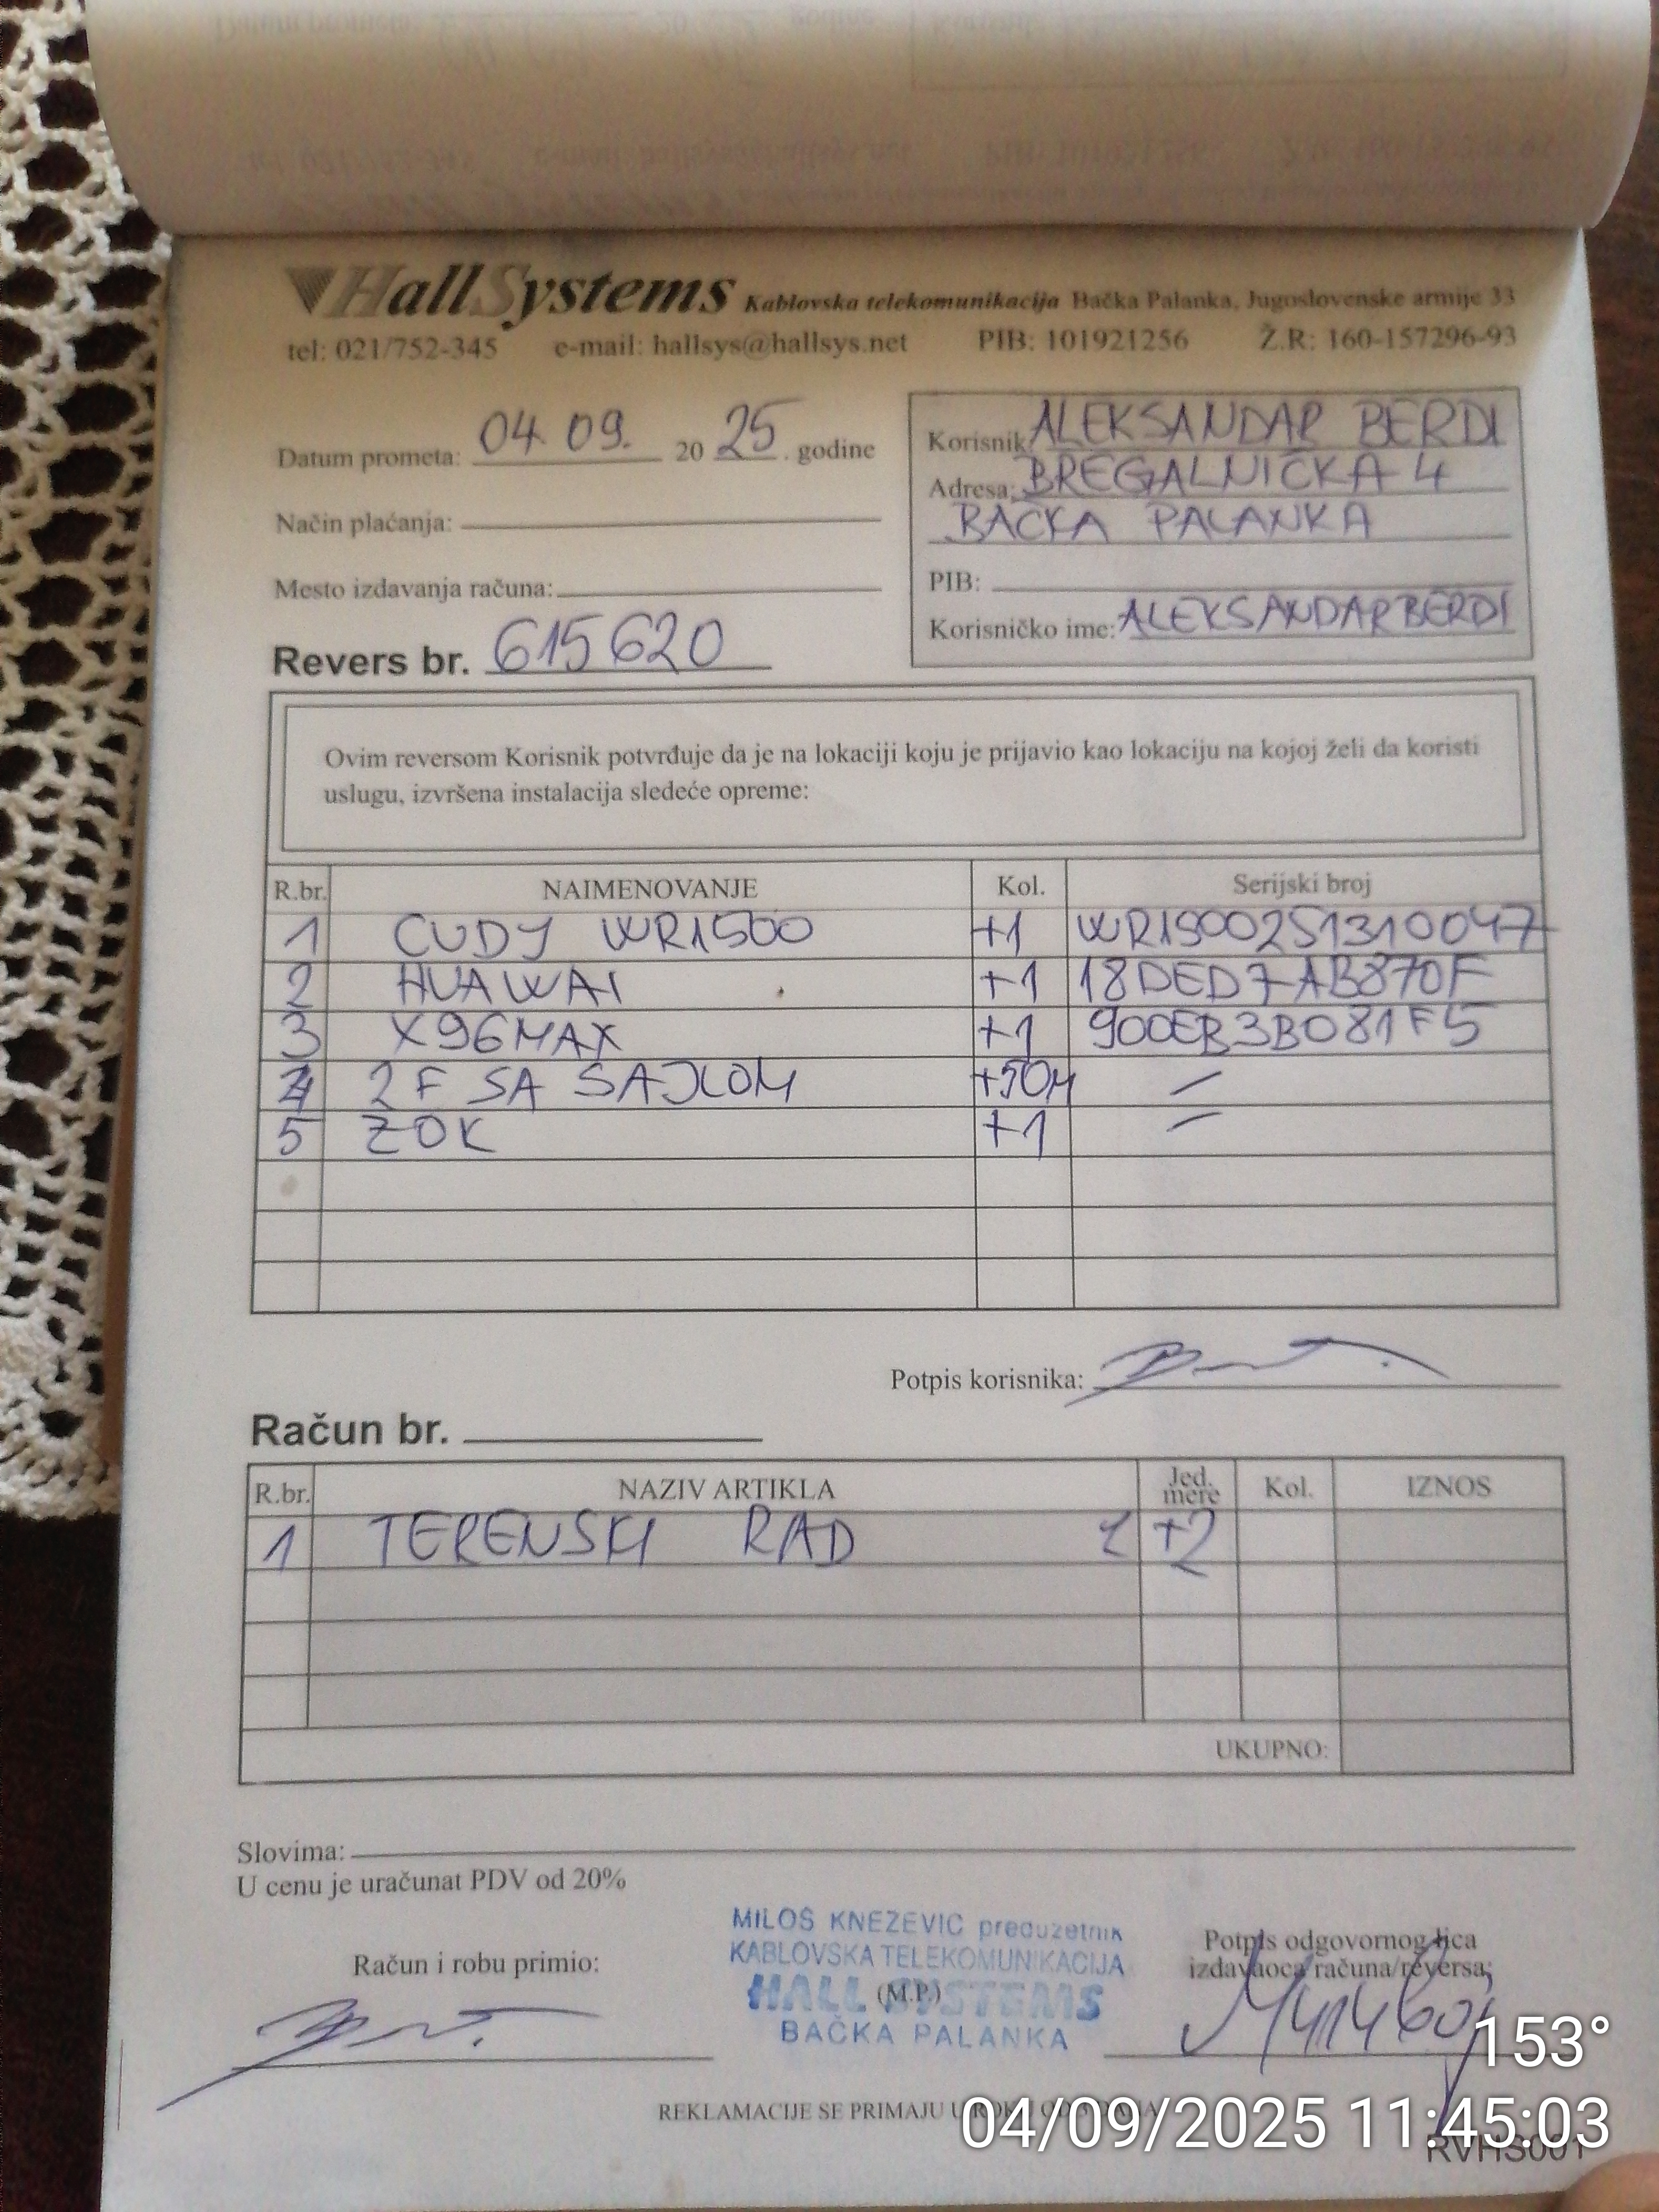 HallSystems Kablovska telekomunikacija Bačka Palanka, Jugoslovenske armije 33
tel: 021/752-345 e-mail: hallsys@hallsys.net PIB: 101921256 Ž.R: 160-157296-93
Datum prometa: 04.09. 20 25. godine
Način plaćanja:
Mesto izdavanja računa:
Revers br. 615620
Korisnik: ALEKSANDAR BERDI
Adresa: BREGALNIČKA 4
BAČKA PALANKA
PIB:
Korisničko ime: ALEKSANDARBERDI
Ovim reversom Korisnik potvrđuje da je na lokaciji koju je prijavio kao lokaciju na kojoj želi da koristi
uslugu, izvršena instalacija sledeće opreme:
R.br. NAIMENOVANJE Kol. Serijski broj
1 CUDY WR1500 +1 WR1500251310047
2 HUAWAI +1 18DED7AB870F
3 X96MAX +1 900EB3B081F5
4 2F SA SAJLOM +50M /
5 ZOK +1 /
Potpis korisnika:
Račun br.
R.br. NAZIV ARTIKLA Jed. mere Kol. IZNOS
1 TERENSKI RAD +2
UKUPNO:
Slovima:
U cenu je uračunat PDV od 20%
Račun i robu primio:
MILOŠ KNEŽEVIĆ preduzetnik
KABLOVSKA TELEKOMUNIKACIJA
HALL SYSTEMS
(M.P.)
BAČKA PALANKA
Potpis odgovornog lica
izdavaoca računa/reversa:
REKLAMACIJE SE PRIMAJU U
153°
04/09/2025 11:45:03
RVHS001